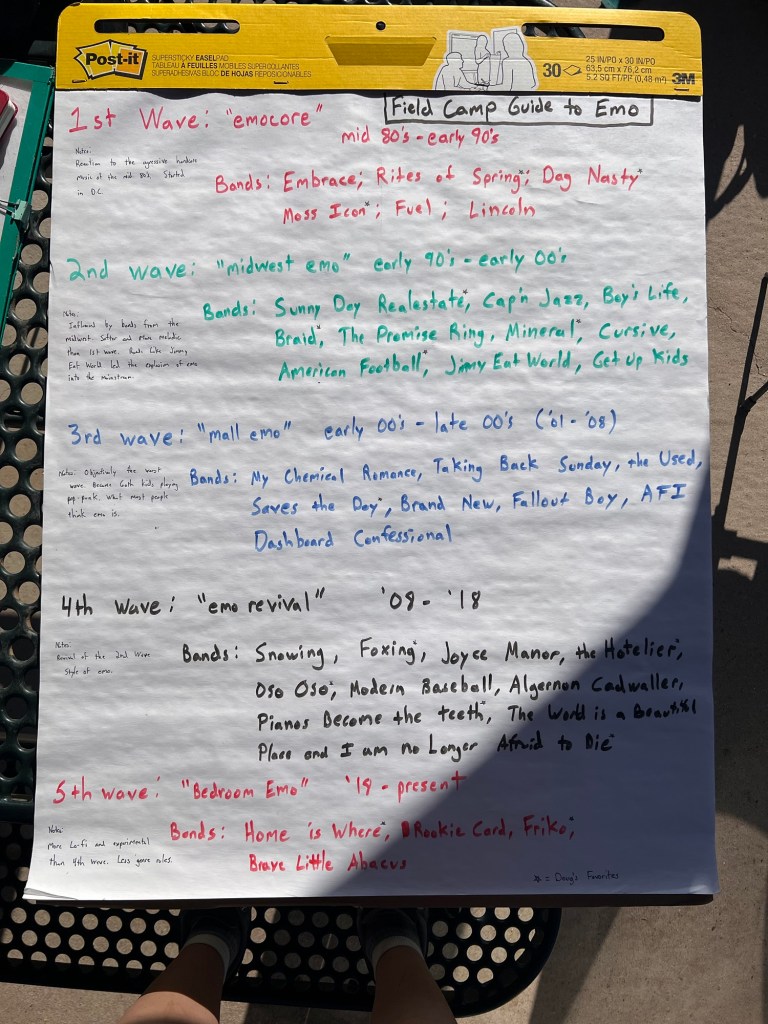 Post-it
SUPERSTICKY EASEL PAD
TABLEAU À FEUILLES MOBILES SUPER COLLANTES
SUPERADHESIVAS BLOC DE HOJAS REPOSICIONABLES
30
25 IN/PO x 30 IN/PO
63,5 cm x 76,2 cm
5.2 SQ FT/PI² (0,48 m²)
3M
Field Camp Guide to Emo
1st Wave: "emocore"
mid 80's - early 90's
Notes:
Reaction to the agressive hardcore
music of the mid 80s. Started
in D.C.
Bands: Embrace; Rites of Spring*; Dag Nasty*
Moss Icon*; Fuel; Lincoln
2nd wave: "midwest emo" early 90's - early 00's
Notes:
Influenced by bands from the
midwest. Softer and more melodic
than 1st wave. Bands like Jimmy
Eat World led the explosion of emo
into the mainstream.
Bands: Sunny Day Realestate*, Cap'n Jazz, Boy's Life,
Braid*, The Promise Ring, Mineral*, Cursive,
American Football*, Jimy Eat World, Get Up Kids
3rd wave: "mall emo" early 00's - late 00's ('01 - '08)
Notes: Objectively the worst
wave. Became Goth kids playing
pop-punk. What most people
think emo is.
Bands: My Chemical Romance, Taking Back Sunday, the Used,
Saves the Day*, Brand New, Fallout Boy, AFI
Dashboard Confessional
4th Wave: "emo revival" '08 - '18
Notes:
Revival of the 2nd Wave
Style of emo.
Bands: Snowing, Foxing*, Joyce Manor, the Hotelier*,
Oso Oso*, Modern Baseball, Algernon Cadwaller,
Pianos Become the teeth*, The World is a Beautiful
Place and I am no Longer Afraid to Die*
5th wave: "Bedroom Emo" '18 - present
Notes:
More Lo-fi and exprimental
than 4th wave. Less genre rules.
Bands: Home is Where*, Rookie Card, Friko*,
Brave Little Abacus
* = Doug's Favorites